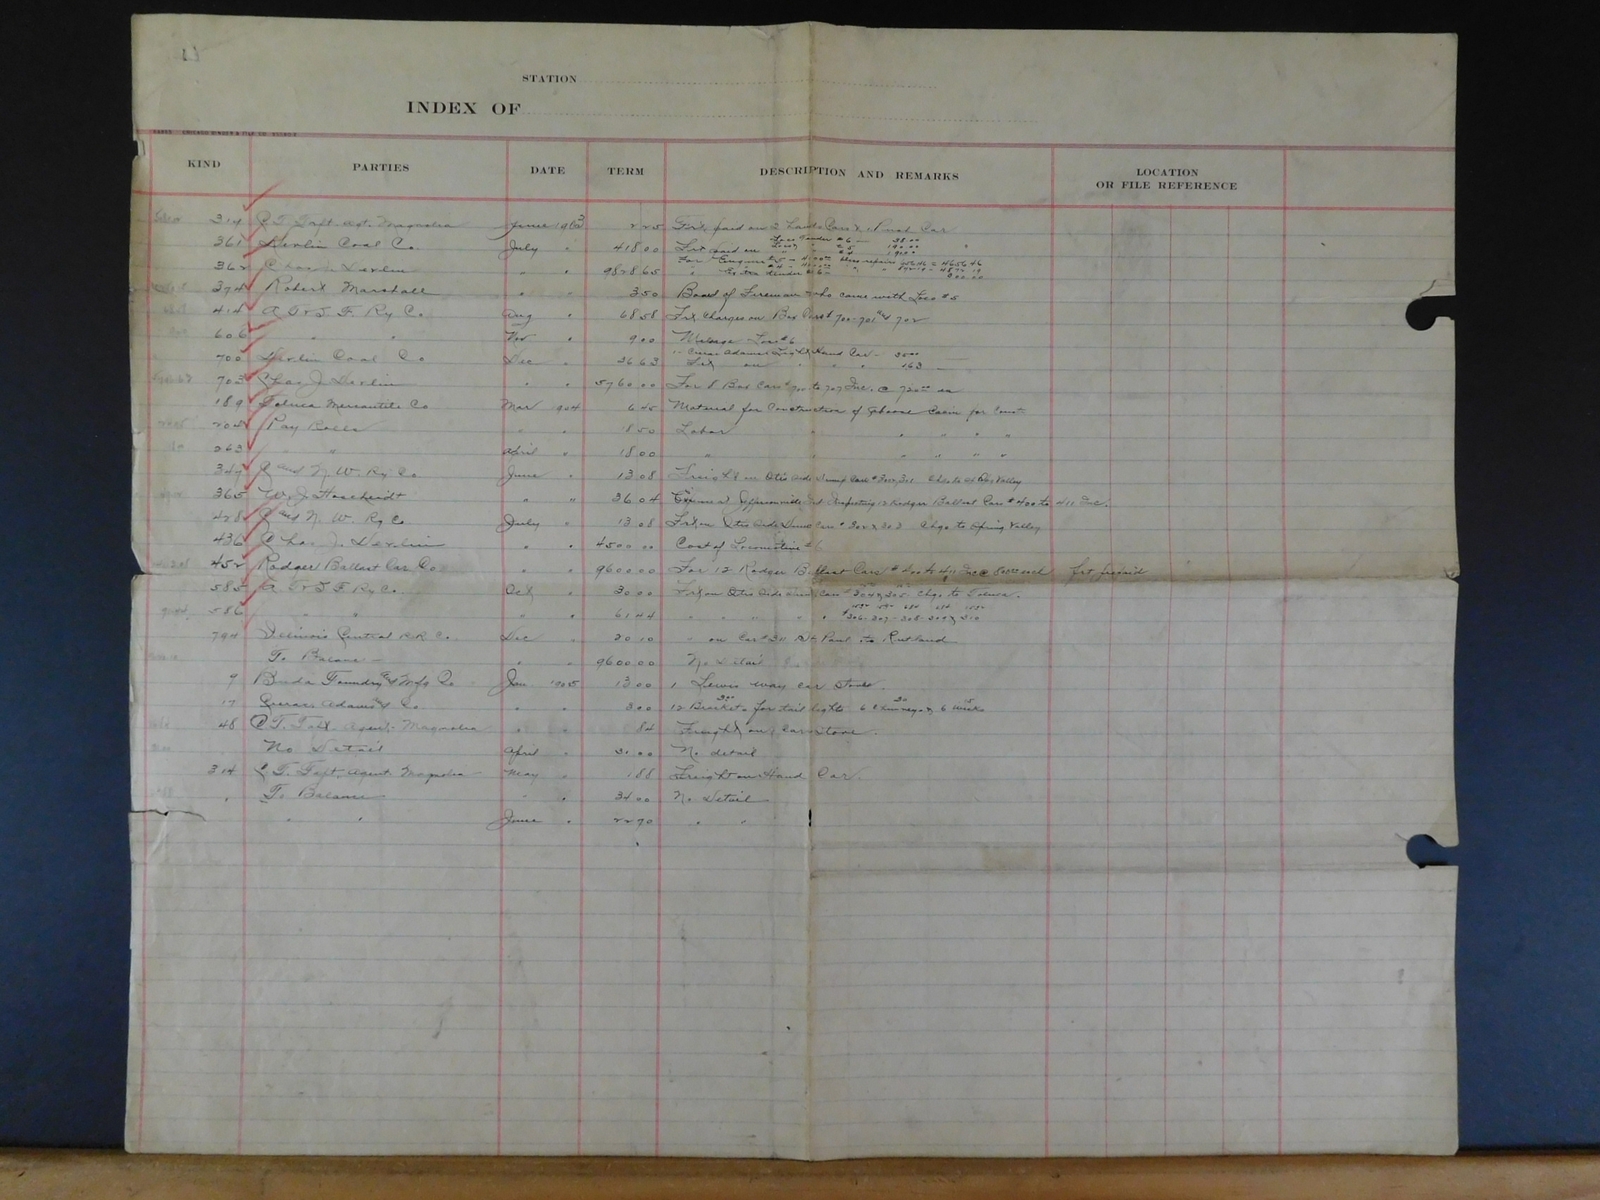 STATION
INDEX OF
KIND PARTIES DATE TERM DESCRIPTION AND REMARKS LOCATION OR FILE REFERENCE
314 C. T. Taft, agt. Magnolia June 1903 2 25 Frt. paid on 2 Hand Cars & 1 Push Car
361 Devlin Coal Co. July " 418 00 Frt. paid on
362 Chas. J. Devlin " " 9828 65
374 Robert Marshall " " 3 50 Board of Fireman who came with Loco #5
414 A. T & S. F. Ry Co Aug " 68 58 Frt. Charges on Box Cars # 700-701 and 702
606 " " Nov " 9 00 Mileage - Loco #6
700 Devlin Coal Co Dec " 26 63 Crerar Adams Light Hand Car - 25 00
Frt on " " " 1 63
703 Chas J. Devlin " " 5760 00 For 8 Box Cars 700 to 707 Inc. @ 720 00 ea
189 Toluca Mercantile Co Mar 1904 6 45 Material for Construction of Caboose
205 Pay Rolls " " 18 50 Labor " " " " "
263 " " April " 18 00 " " " " " "
347 C and N. W. Ry Co. June " 13 08 Freight on Otis Side Dump Cars # 300 & 301 Chgo to Spg Valley
365 W. J. Hoscheidt " " 26 04 Expense Jeffersonville Ind Inspecting 12 Rodger Ballast Cars # 400 to 411 Inc.
428 C and N. W. Ry Co July " 13 08 Frt on Otis Side Dump Cars # 302 & 303 Chgo to Spring Valley
436 Chas. J. Devlin " " 4500 00 Cost of Locomotive #6
452 Rodger Ballast Car Co " " 9600 00 For 12 Rodger Ballast Cars # 400 to 411 Inc @ 800 00 each frt prepaid
585 A. T & S F Ry Co. Oct " 30 00 Frt on Otis Side Dump Cars # 304 & 305 Chgo to Toluca.
586 " " " " 61 44 " " " " " # 306-307-308-309 & 310
794 Illinois Central R.R. Co. Dec " 20 10 " on Car # 30 St Paul to Rutland
To Balance - " " 9600 00 No Detail
9 Buda Foundry & Mfg Co Jan 1905 13 00 1 Lewis way car stove.
17 Crerar Adams & Co. " " 3 00 12 Brackets for tail lights 6 Chimneys & 6 Wicks
48 C. T. Taft, Agent, Magnolia " " 84 Freight on Car stove.
No Detail April " 31 00 No detail
314 C. T. Taft, Agent Magnolia May " 1 88 Freight on Hand Car.
" To Balance " " 34 00 No Detail
" " June " 22 70 " "